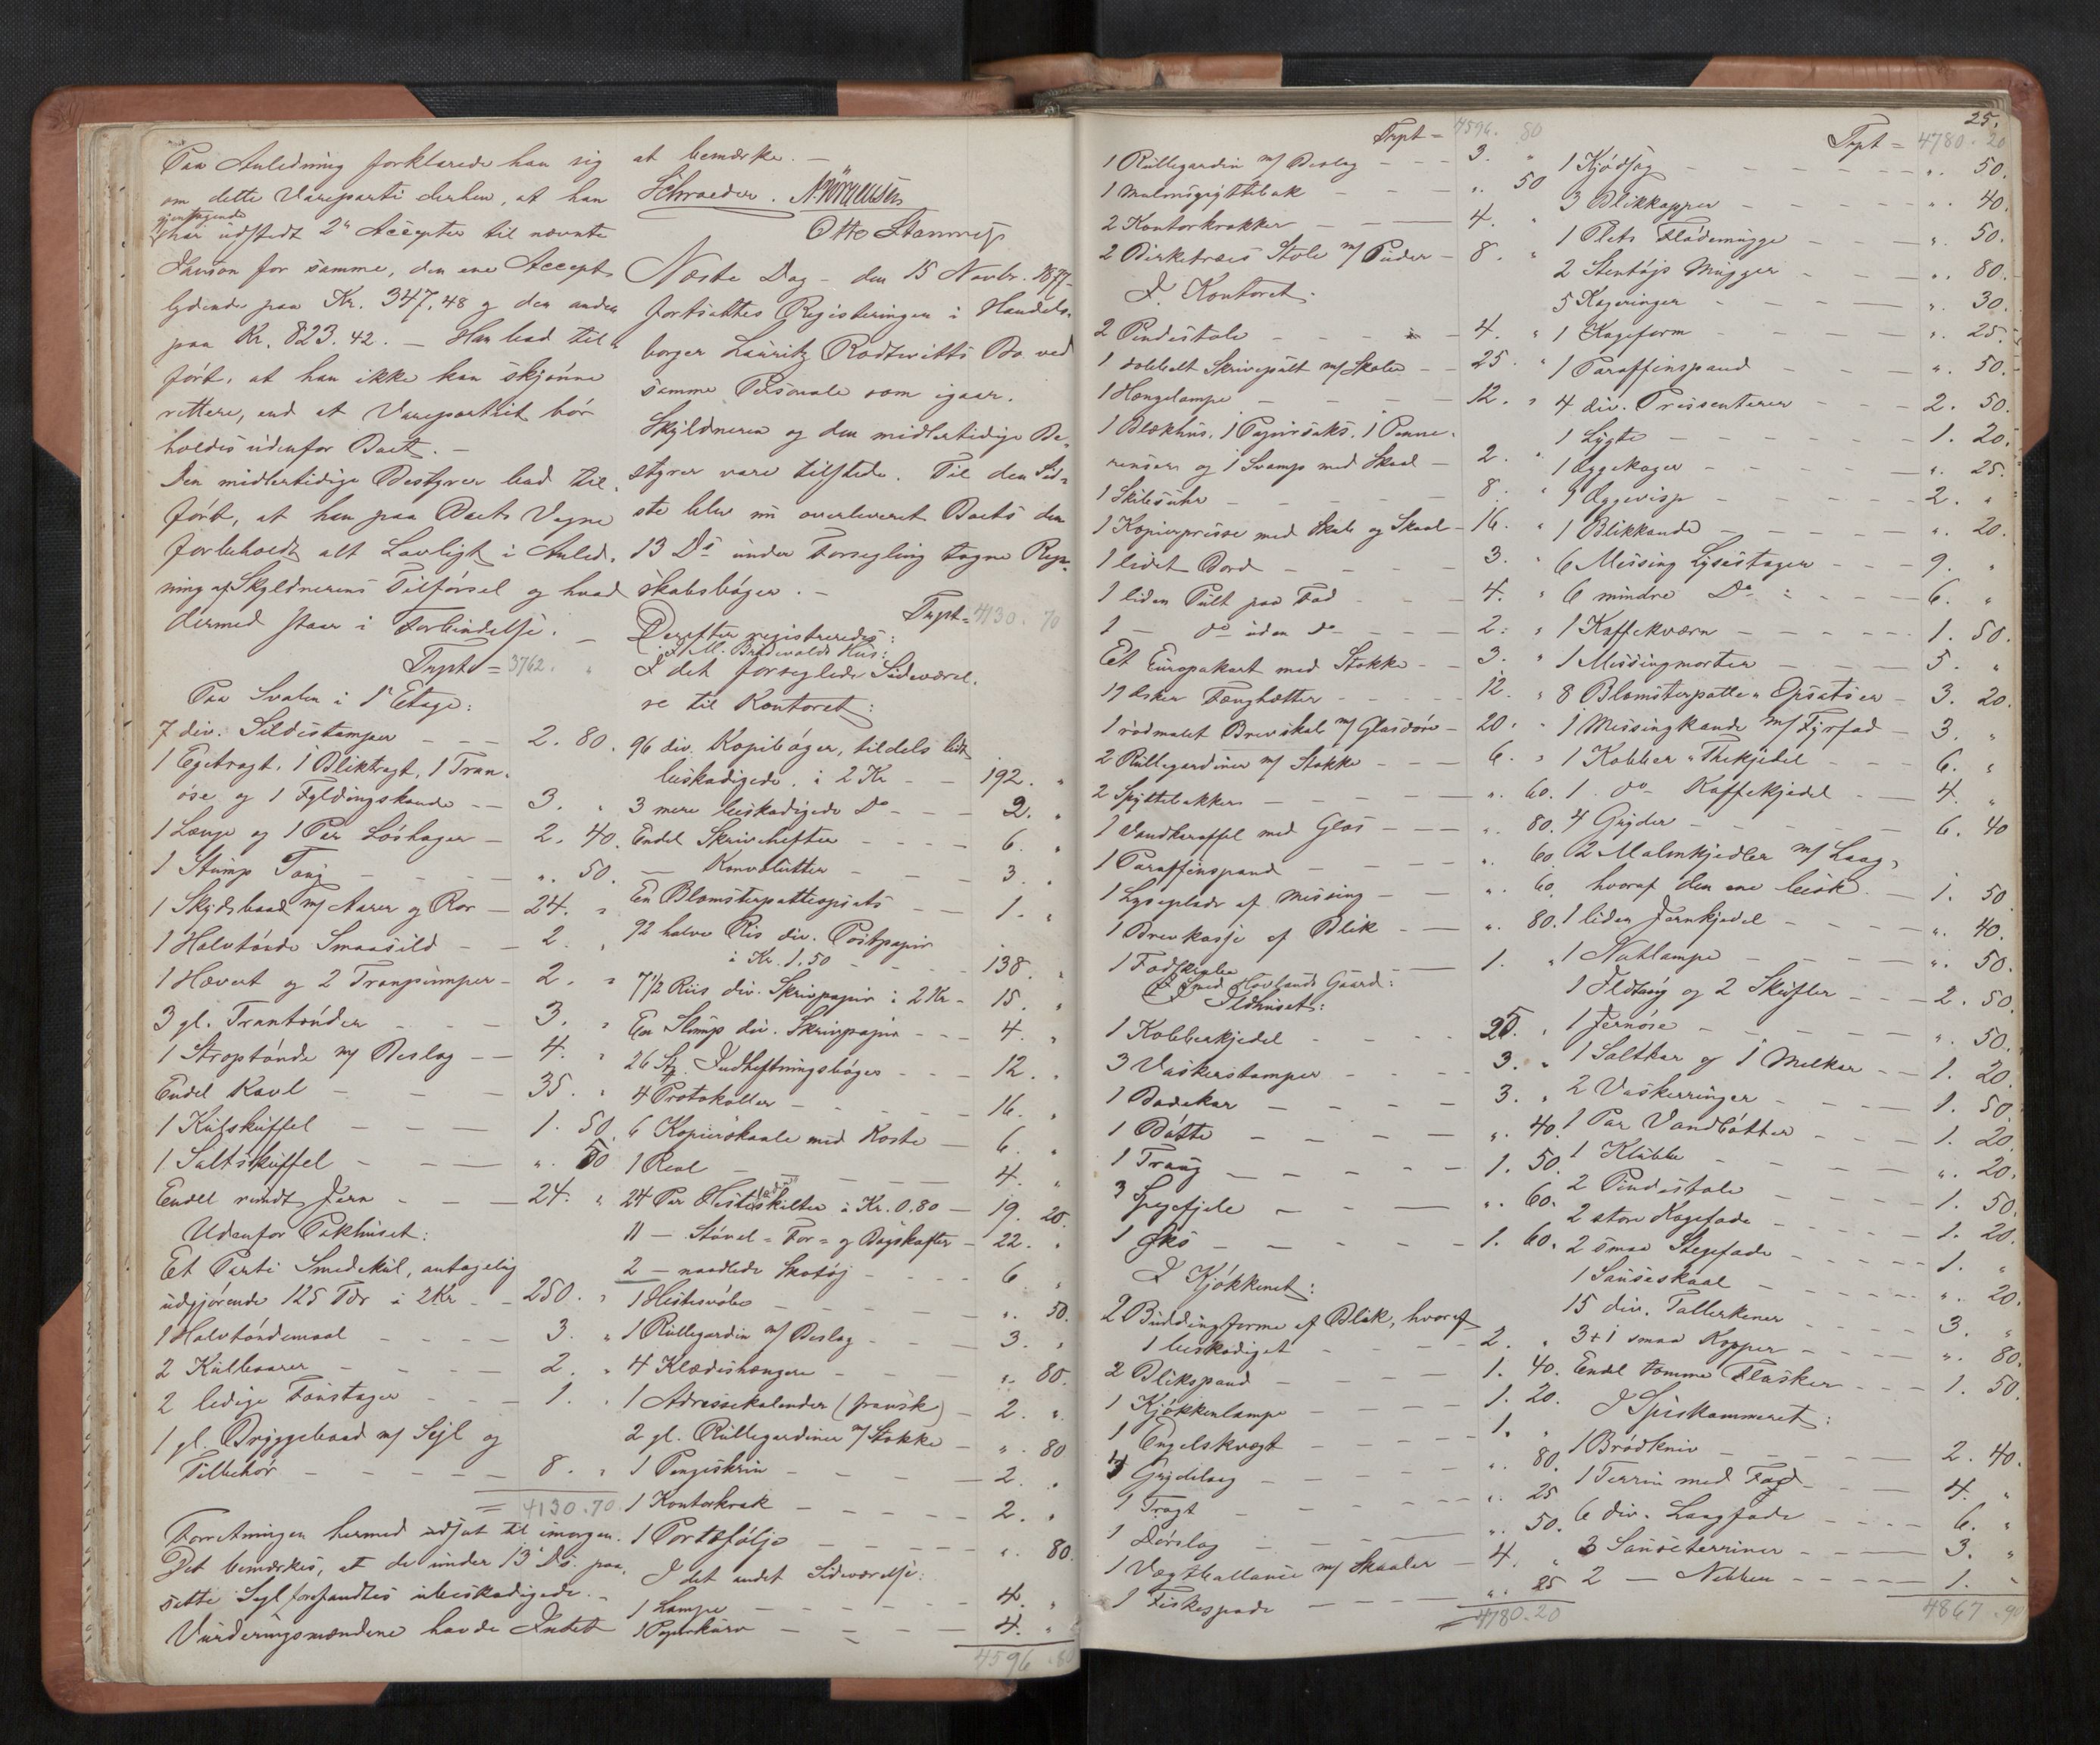 Paa Anledning forklarede han sig
om dette Vareparti derhen, at han
gjentagende
har udstedt 2 Accepter til nævnte
Iverson for samme, den ene Accept
lydende paa Kr. 347,48 og den anden
paa Kr. 823.42. — Han bad til¬
ført, at han ikke kan skjønne
rettere, end at Varepartiet bør
holdes udenfor Boet. —
Den midlertidige Bestyrer bad til¬
ført, at han paa Boets Vegne
forbeholdt alt Lovligt i Anled¬
ning af Skyldnerens Tilførsel og hvad
dermed staar i Forbindelse. —
Trspt = 3762. "
Paa Svalen i 1ste Etage:
7 div. Sildestamper — 2. 80.
1 Egetragt, 1 Bliktragt, 1 Tran¬
øse og 1 Fyldingskande — 3. "
1 Længe og 1 Par Løshager — 2. 40.
1 Stump Toug — ". 50.
1 Skydsbaad m/ Aarer og Ror — 24. "
1 Halvtønde Smaasild — 2. "
1 Hævert og 2 Tranpumper — 2. "
3 gl. Trantønder — 3. "
1 Stroptønde m/ Beslag — 4. "
Endel Kavl — 35. "
1 Kulskuffel — 1. 50.
1 Saltskuffel — ". 50
Endel rundt Jern — 24. "
Udenfor Pakhuset:
Et Parti Smedekul, antagelig
udgjørende 125 Tdr à 2 Kr — 250. "
1 Halvtøndemaal — 3. "
2 Kulbaarer — 2. "
2 ledige Foustager — 1. "
1 gl. Bryggebaad m/ Sejl og
Tilbehør — 8. "
= 4130.70
Forretningen hermed udsat til imorgen.
Det bemærkes, at de under 13 ds. paa¬
satte Segl forefandtes ubeskadigede. —
Vurderingsmændene havde Intet
at bemærke. —
Schroeder. N. Børgensen
Otto Stamnes
Næste Dag — den 15 Novbr. 1877 —
fortsattes Registeringen i Handels¬
borger Lauritz Rodtwitts Bo ved
samme Personale som igaar.
Skyldneren og den midlertidige Be¬
styrer vare tilstede. Til den Sid¬
ste blev nu overleveret Boets den
13 Ds under Forsegling tagne Regn¬
skabsbøger. —
Trspt = 4130. 70
Derefter registreredes:
I M. Brudevalds Hus:
I det forseglede Sideværel¬
se til Kontoret:
96 div. Kopibøger, tildels lidt
beskadigede, à 2 Kr — 192. "
3 mere beskadigede Do — 2. "
Endel Skrivehefter — 6. "
— Konvolutter — 3. "
En Blomsterpotteopsats — 1. "
92 halve Ris div. Postpapir
à Kr. 1.50 — 138. "
7 1/2 Riis div. Skrivpapir à 2 Kr — 15. "
En Slump div. Skrivpapir — 4. "
26 Stk. Indheftningsbøger — 12. "
4 Protokoller — 16. "
6 Kopierskaale med Koste — 6. "
1 Reol — 4. "
24 Par Hesteskilter à Kr. 0.80 — 19. 20.
11 — Støvel = For = og Bagskafter — 22. "
2 — naadlede Skotøj — 6. "
1 Hestesvøbe — ". 50.
1 Rullegardin m/ Beslag — 3. "
4 Klædeshængere — ". 80.
1 Adressekalender (fransk) — 2. "
2 gl. Rullegardiner m/ Stokke — ". 80
1 Pengeskrin — 2. "
1 Kontorkrak — 2. "
1 Portefølje — ". 80.
I det andet Sideværelse:
1 Lampe — 4. "
1 Papirkurv — 4. "
4596. 80
25.
Trspt = 4596. 80
1 Rullegardin m/ Beslag — 3. "
1 Malmspyttebak — ". 50
2 Kontorkrakker — 4. "
2 Birketræes Stole m/ Puder — 8. "
I Kontoret:
2 Pindestole — 4. "
1 dobbelt Skrivepult m/ Skabe — 25. "
1 Hængelampe — 12. "
1 Blækhus, 1 Papirsaks, 1 Penne¬
renser og 1 Svamp med Skaal — 2. "
1 Skibsuhr — 8. "
1 Kopierpresse med Skab og Skaal — 16. "
1 lidet Bord — 3. "
1 liden Pult paa Fod — 4. "
1 — do uden do — 2. "
Et Europakart med Stokke — 3. "
19 Æsker Fænghætter — 12. "
1 rødmalet Brevskab m/ Glasdøre — 20. "
2 Rullegardiner m/ Stokke — 6. "
2 Spyttebakker — ". 60.
1 Vandkaraffel med Glas — ". 80.
1 Paraffinspand — ". 60
1 Lyseplade af Messing — ". 60
1 Brevkasse af Blik — ". 80.
1 Fodskraber — 1. "
I Smed Hovlands Gaard:
I Ildhuset:
1 Kobberkjedel — 25. "
3 Vaskerstamper — 3. "
1 Badekar — 3. "
1 Bøtte — ". 40.
1 Traug — 1. 50.
3 Spegefjele — ". 60.
1 Øks — 1. 60.
I Kjøkkenet:
2 Buddingforme af Blik, hvoraf
1 beskadiget — 2. "
2 Blikspand — 1. 40.
1 Kjøkkenlampe — 1. 20.
1 Engelskvægt — 1. "
3 Grydelaag — ". 80.
1 Tragt — ". 25
1 Dørslag — ". 50.
1 Vægtballance m/ Skaaler — 4. "
1 Fiskespade — ". 25
= 4780.20
Trspt = 4780. 20
1 Kjødsag — ". 50.
3 Blikkopper — ". 40.
1 Plets Flødemugge — ". 50.
2 Stentøjs Mugger — ". 80.
5 Kageringer — ". 30.
1 Kageform — ". 25.
1 Paraffinspand — ". 50.
4 div. Pressenterer — 2. 50.
1 Lygte — 1. 20.
1 Æggekoger — ". 25.
1 Æggevisp — 2. "
1 Blikkande — ". 20.
6 Messing Lysestager — 9. "
6 mindre Do — 6. "
1 Kaffekværn — 1. 50.
1 Messingmorter — 5. "
8 Blomsterpotte = Opsatser — 3. 20.
1 Messingkande m/ Fyrfad — 3. "
1 Kobber = Thekjedel — 6. "
1 do Kaffekjedel — 4. "
4 Gryder — 6. 40
2 Malmkjedler m/ Laag,
hvoraf den ene besk. — 1. 50
1 liden Jernkjedel — ". 40.
1 Natlampe — ". 50.
1 Ildtang og 2 Skufler — 2. 50.
1 Jernøse — ". 50.
1 Saltkar og 1 Melkar — 1. 20.
2 Vaskerringer — 1. 50.
1 Par Vandbøtter — 1. 20.
1 Klubbe — ". 20.
2 Pindestole — 1. 50.
2 store Kagefade — 1. 20.
2 smaa Stegefade — 1. "
1 Sauseskaal — ". 20.
15 div. Tallerkener — 3. "
3 + 1 smaa Kopper — ". 80.
Endel tomme Flasker — 1. 50.
I Spiskammeret:
1 Brødkniv — 2. 40.
1 Terrin med Fad — 4. "
6 div. Laagfade — 6. "
3 Sauseterriner — 3. "
2 — Nebber — 1. "
4867.90